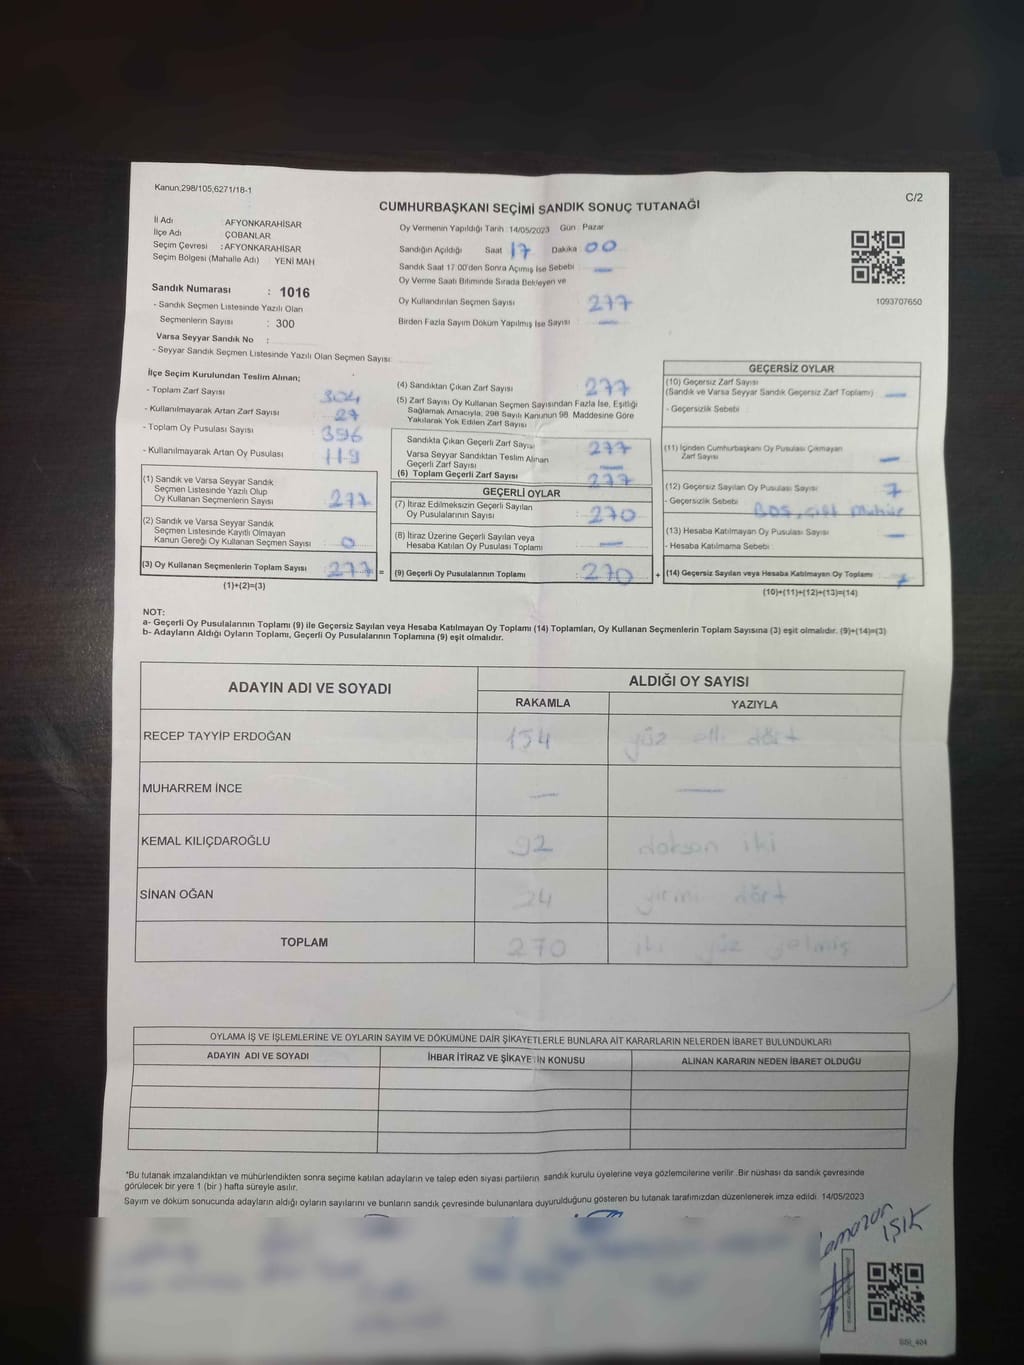 Kanun,298/105,6271/18-1
C/2
CUMHURBAŞKANI SEÇİMİ SANDIK SONUÇ TUTANAĞI
İl Adı AFYONKARAHİSAR
İlçe Adı ÇOBANLAR
Seçim Çevresi : AFYONKARAHİSAR
Seçim Bölgesi (Mahalle Adı) YENİ MAH
Sandık Numarası : 1016
- Sandık Seçmen Listesinde Yazılı Olan
Seçmenlerin Sayısı : 300
Varsa Seyyar Sandık No :
- Seyyar Sandık Seçmen Listesinde Yazılı Olan Seçmen Sayısı:
Oy Vermenin Yapıldığı Tarih : 14/05/2023 Gün : Pazar
Sandığın Açıldığı Saat 17 Dakika 00
Sandık Saat 17:00'den Sonra Açımış İse Sebebi —
Oy Verme Saati Bitiminde Sırada Bekleyen ve
Oy Kullandırılan Seçmen Sayısı 277
Birden Fazla Sayım Döküm Yapılmış İse Sayısı : —
1093707650
İlçe Seçim Kurulundan Teslim Alınan;
- Toplam Zarf Sayısı 304
- Kullanılmayarak Artan Zarf Sayısı : 27
- Toplam Oy Pusulası Sayısı 396
- Kullanılmayarak Artan Oy Pusulası 119
(1) Sandık ve Varsa Seyyar Sandık
Seçmen Listesinde Yazılı Olup
Oy Kullanan Seçmenlerin Sayısı : 277
(2) Sandık ve Varsa Seyyar Sandık
Seçmen Listesinde Kayıtlı Olmayan
Kanun Gereği Oy Kullanan Seçmen Sayısı : 0
(3) Oy Kullanan Seçmenlerin Toplam Sayısı : 277 =
(1)+(2)=(3)
(4) Sandıktan Çıkan Zarf Sayısı : 277
(5) Zarf Sayısı Oy Kullanan Seçmen Sayısından Fazla İse, Eşitliği
Sağlamak Amacıyla, 298 Sayılı Kanunun 98. Maddesine Göre
Yakılarak Yok Edilen Zarf Sayısı
Sandıkta Çıkan Geçerli Zarf Sayısı 277
Varsa Seyyar Sandıktan Teslim Alınan
Geçerli Zarf Sayısı —
(6) Toplam Geçerli Zarf Sayısı : 277
GEÇERLİ OYLAR
(7) İtiraz Edilmeksizin Geçerli Sayılan
Oy Pusulalarının Sayısı : 270
(8) İtiraz Üzerine Geçerli Sayılan veya
Hesaba Katılan Oy Pusulası Toplamı —
(9) Geçerli Oy Pusulalarının Toplamı : 270 +
GEÇERSİZ OYLAR
(10) Geçersiz Zarf Sayısı
(Sandık ve Varsa Seyyar Sandık Geçersiz Zarf Toplamı) : —
- Geçersizlik Sebebi
(11) İçinden Cumhurbaşkanı Oy Pusulası Çıkmayan
Zarf Sayısı —
(12) Geçersiz Sayılan Oy Pusulası Sayısı : 7
- Geçersizlik Sebebi : Boş, çift mühür
(13) Hesaba Katılmayan Oy Pusulası Sayısı : —
- Hesaba Katılmama Sebebi :
(14) Geçersiz Sayılan veya Hesaba Katılmayan Oy Toplamı : 7
(10)+(11)+(12)+(13)=(14)
NOT:
a- Geçerli Oy Pusulalarının Toplamı (9) ile Geçersiz Sayılan veya Hesaba Katılmayan Oy Toplamı (14) Toplamları, Oy Kullanan Seçmenlerin Toplam Sayısına (3) eşit olmalıdır. (9)+(14)=(3)
b- Adayların Aldığı Oyların Toplamı, Geçerli Oy Pusulalarının Toplamına (9) eşit olmalıdır.
ADAYIN ADI VE SOYADI ALDIĞI OY SAYISI
RAKAMLA YAZIYLA
RECEP TAYYİP ERDOĞAN 154 yüz elli dört
MUHARREM İNCE — —
KEMAL KILIÇDAROĞLU 92 doksan iki
SİNAN OĞAN 24 yirmi dört
TOPLAM 270 iki yüz yetmiş
OYLAMA İŞ VE İŞLEMLERİNE VE OYLARIN SAYIM VE DÖKÜMÜNE DAİR ŞİKAYETLERLE BUNLARA AİT KARARLARIN NELERDEN İBARET BULUNDUKLARI
ADAYIN ADI VE SOYADI İHBAR İTİRAZ VE ŞİKAYETİN KONUSU ALINAN KARARIN NEDEN İBARET OLDUĞU
*Bu tutanak imzalandıktan ve mühürlendikten sonra seçime katılan adayların ve talep eden siyasi partilerin sandık kurulu üyelerine veya gözlemcilerine verilir. Bir nüshası da sandık çevresinde
görülecek bir yere 1 (bir) hafta süreyle asılır.
Sayım ve döküm sonucunda adayların aldığı oyların sayılarını ve bunların sandık çevresinde bulunanlara duyurulduğunu gösteren bu tutanak tarafımızdan düzenlenerek imza edildi. 14/05/2023
IŞIK